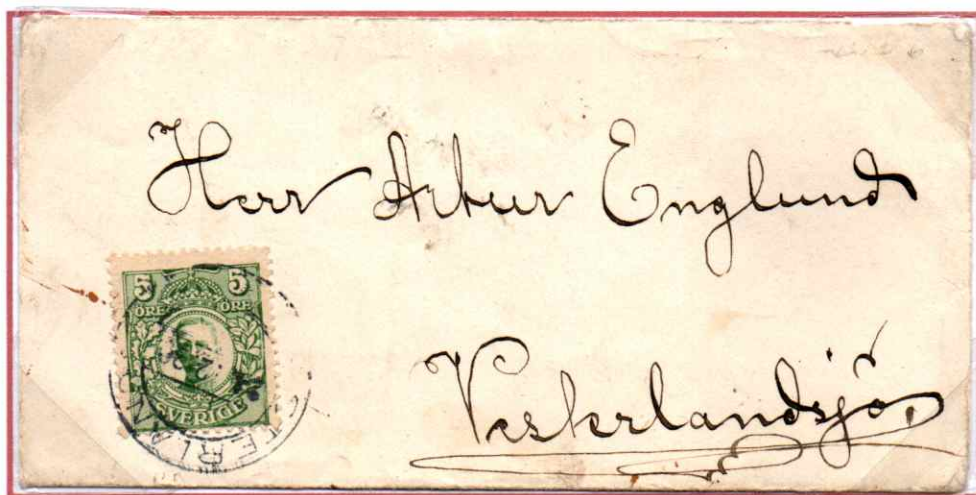 Herr Artur Englund
Vesterlandsjö.
5 5
ÖRE ÖRE
SVERIGE